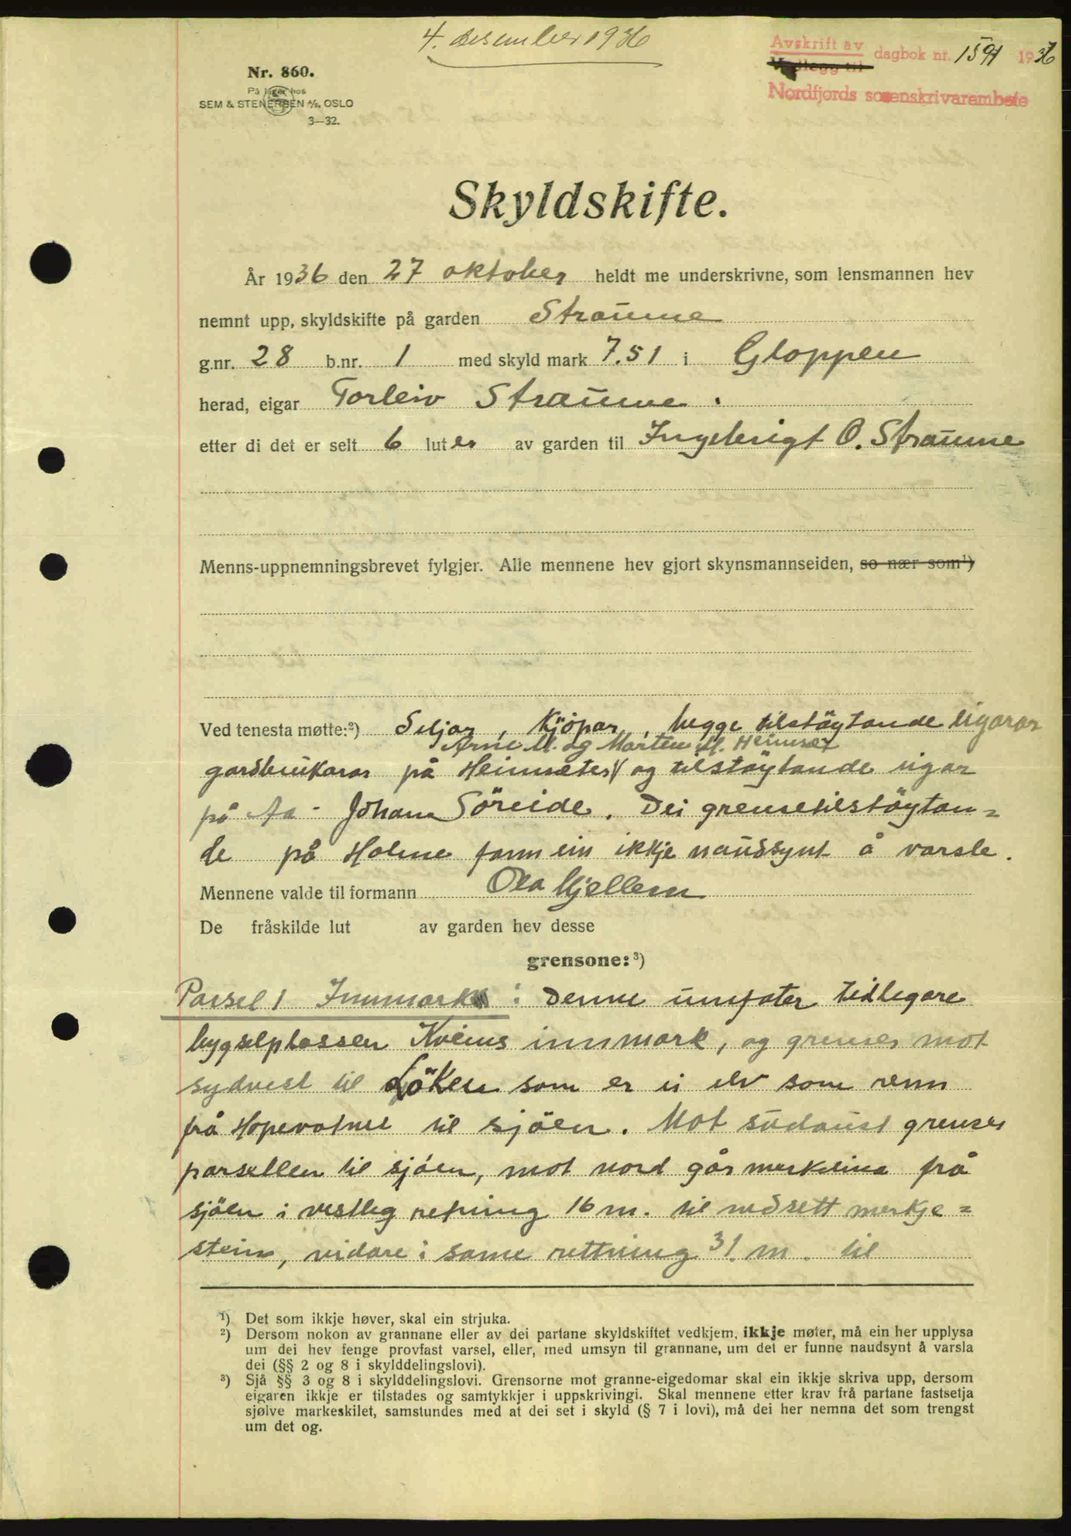 4. desember 1936
Avskrift av
Vedlegg til dagbok nr. 1591 1936
Nordfjords sorenskrivarembete
Nr. 860.
På lager hos
SEM & STENERSEN A/S, OSLO
3—32.
Skyldskifte.
År 1936 den 27 oktober heldt me underskrivne, som lensmannen hev
nemnt upp, skyldskifte på garden Straume
g.nr. 28 b.nr. 1 med skyld mark 7.51 i Gloppen
herad, eigar Torleiv Straume.
etter di det er selt 6 luter av garden til Ingebrigt O. Straume
Menns-uppnemningsbrevet fylgjer. Alle mennene hev gjort skynsmannseiden, so nær som¹)
Ved tenesta møtte:²) Seljar, Kjöpar, begge tilstöytande eigarar
Arne M. og Marten M. Heimset
gardbrukarar på Heimseter og tilstöytande eigar
på Aa - Johan Söreide. Dei grensetilstöytan=
de på Holme fann ein ikkje naudsynt å varsle.
Mennene valde til formann Ola Mjellem
De fråskilde lut av garden hev desse
grensone:³)
Parsel 1 Innmark: Denne umfater tidlegare
bygselplassen Kveins innmark, og grenser mot
sydvest til Löken som er ei elv som renn
frå Hopevatnet til sjöen. Mot sudaust grenser
parsellen til sjöen, mot nord går merkelina frå
sjöen i vestleg retning 16 m. til nedsett merkje=
stein, vidare i same rettning 31 m. til
¹) Det som ikkje høver, skal ein strjuka.
²) Dersom nokon av grannane eller av dei partane skyldskiftet vedkjem, ikkje møter, må ein her upplysa
um dei hev fenge provfast varsel, eller, med umsyn til grannane, um det er funne naudsynt å varsla
dei (§§ 2 og 8 i skylddelingslovi).
³) Sjå §§ 3 og 8 i skylddelingslovi. Grensorne mot granne-eigedomar skal ein ikkje skriva upp, dersom
eigaren ikkje er tilstades og samtykkjer i uppskrivingi. Skal mennene etter krav frå partane fastsetja
sjølve markeskilet, samstundes med at dei set i skyld (§ 7 i lovi), må dei her nemna det som trengst
um det og.